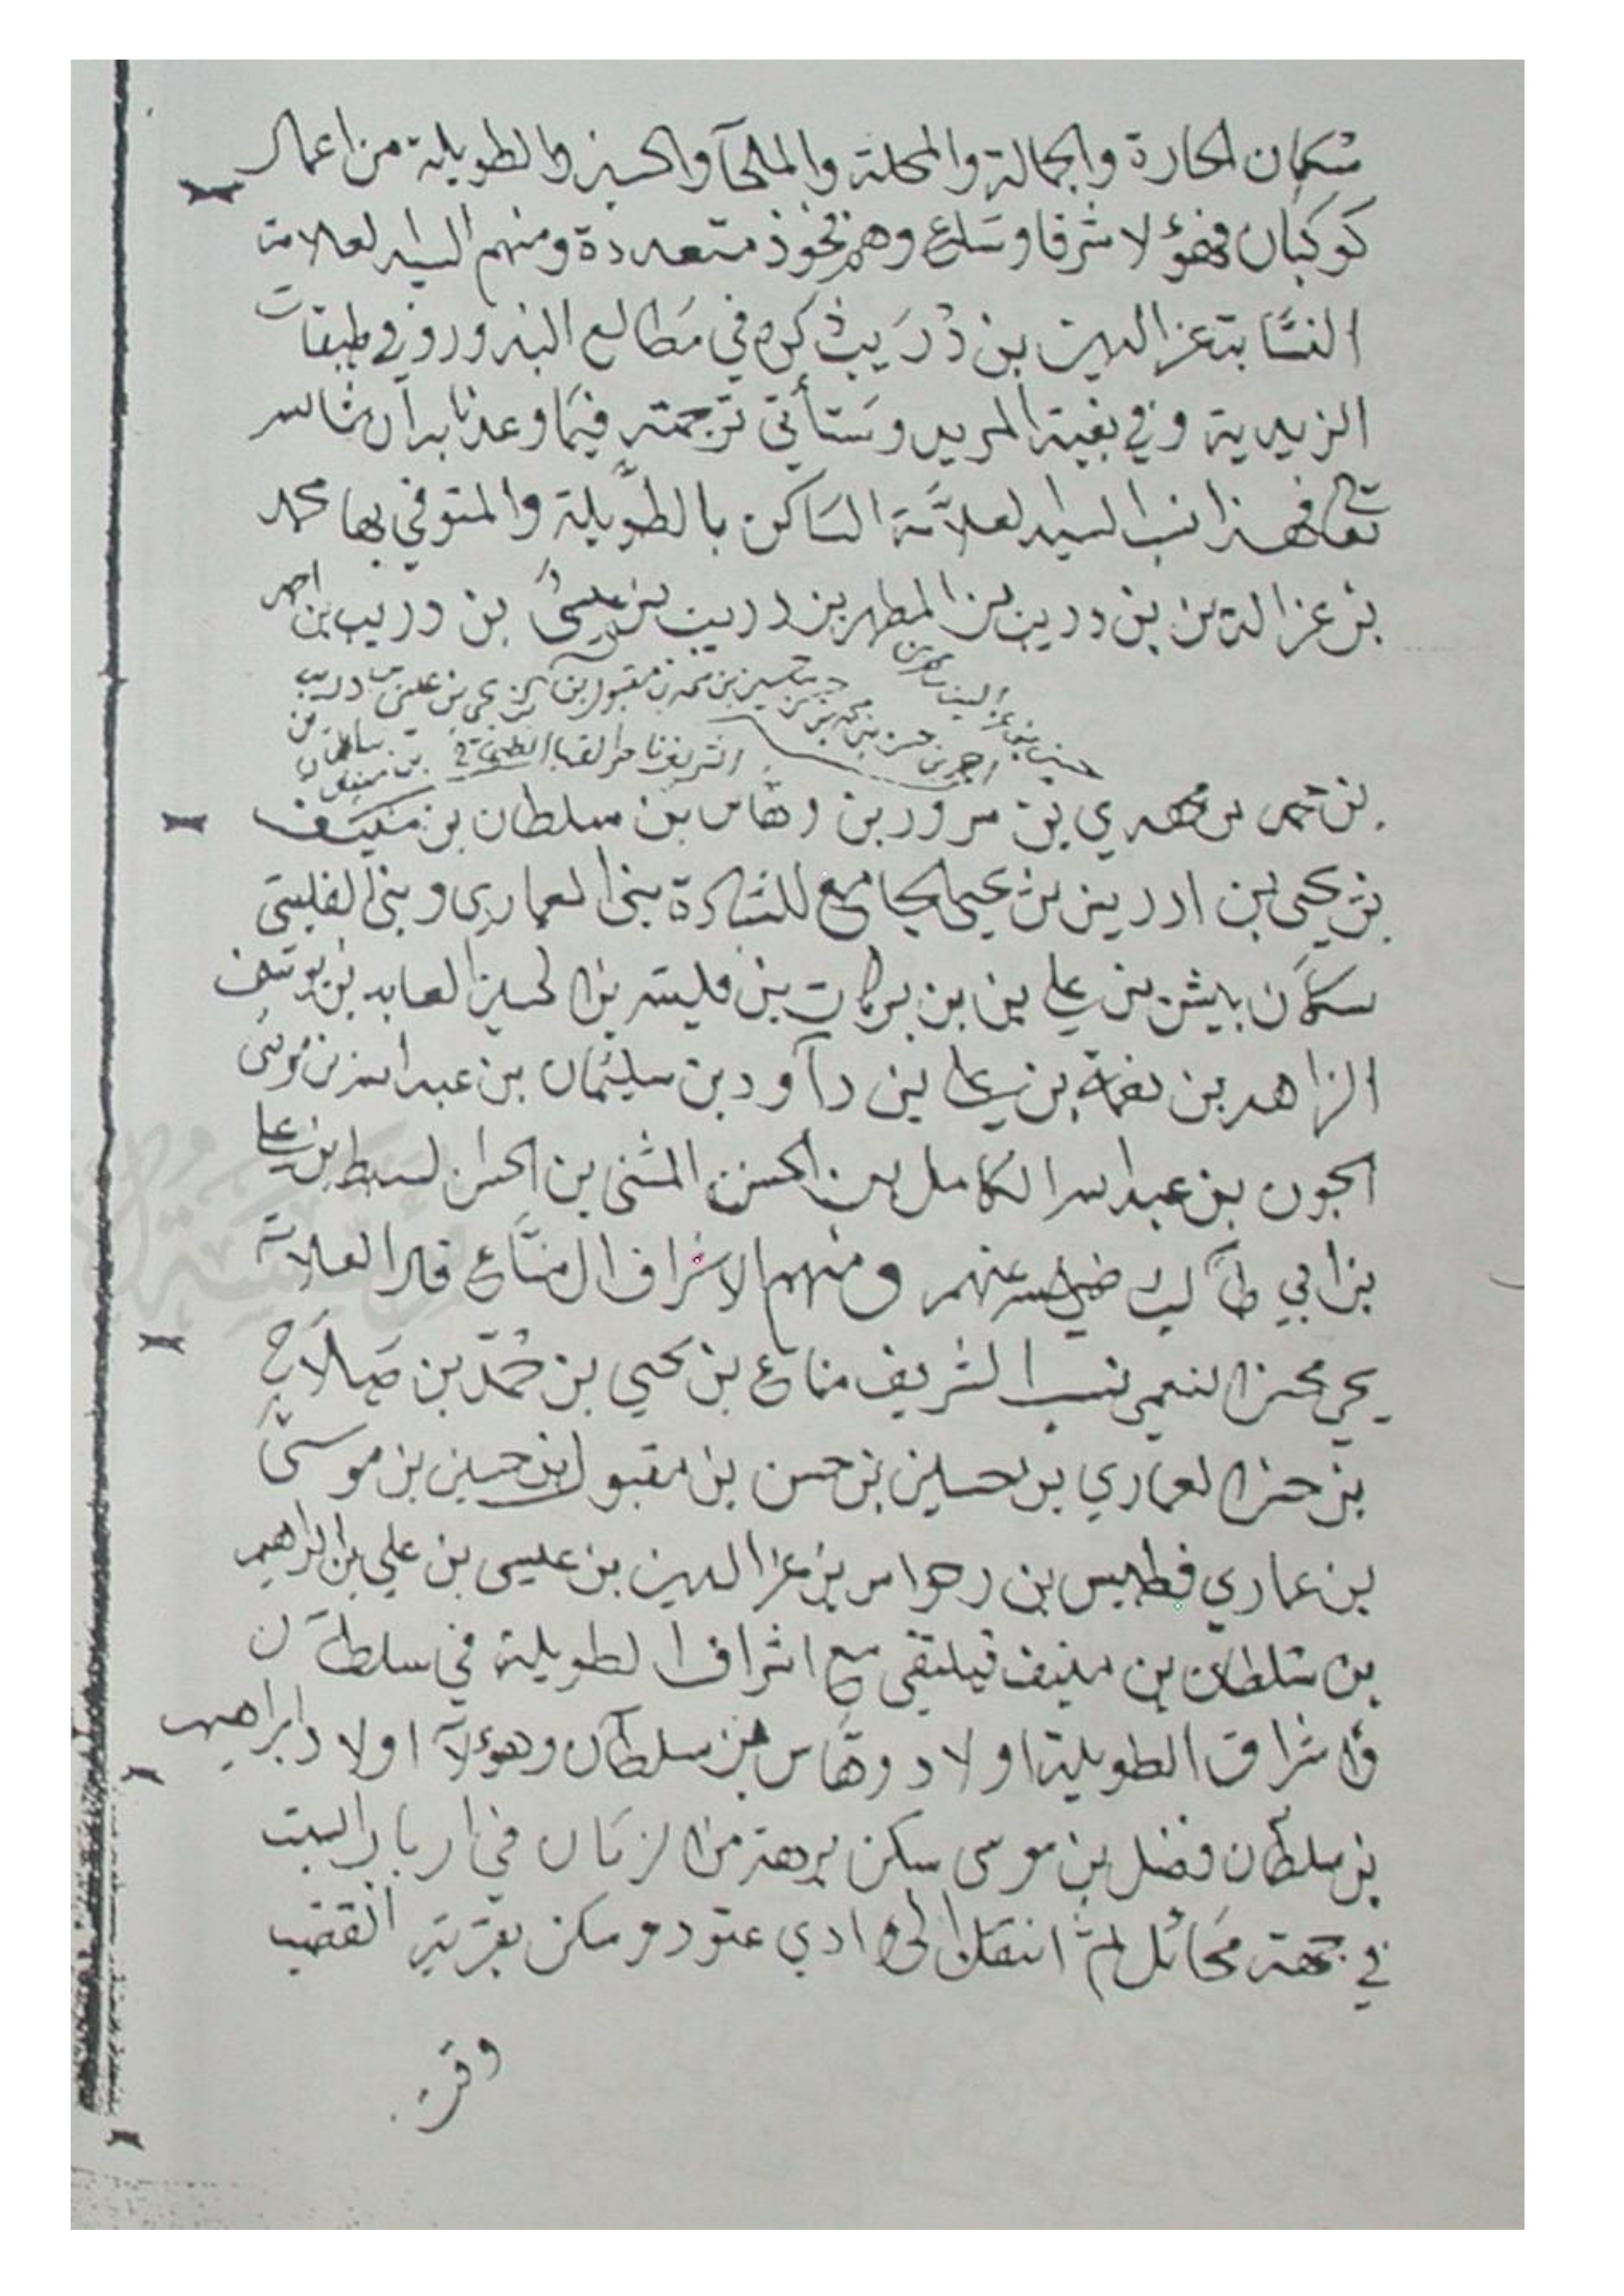 سكان الحارة والجمالة والمحلة والملحآ والحسين والطويلة من اعمال
كوكبان فهؤلا شرفا وسلاع وهم فخوذ متعددة ومنهم السيد لعلامة
النسابة عز الدين بن دُرَيب ذكره في مطالع البدور وفي طبقات
الزيدية وفي بغية المريد وستأتي ترجمته فيما وعدنا به ان شا الله
تعالى فهذا نسب السيد لعلامة الساكن بالطويلة والمتوفي بها محمد
بن عز الدين بن دريب بن المطهر بن دريب بن عيسى بن دريب بن احمد
حسين بن محمد بن مقبول بن بن علي بن دريب
احمد بن حسن بن محمد بن
الشريف بن سلطان بن منيف
بن محمد بن مهدي بن سرور بن وهاس بن سلطان بن منيف
بن يحيى بن ادريس بن يحيى الجامع للسادة بني العماري وبني الفليتي
سكان بيش بن علي بن بركات بن فليته بن الحسين العابد بن يوسف
الزاهد بن نعمة بن علي بن دآود بن سليمان بن عبد الله بن موسى
الجون بن عبد الله الكامل بن الحسن المثنى بن الحسن لسبط بن علي
بن ابي طالب رضي الله عنهم ومنهم الاشراف ال مناع قال العلامة
يحي محسن النعمي نسب الشريف مناع بن يحيي بن حُمّد بن صلاح
بن حسن العماري بن حسين بن حسن بن مقبول بن حسين بن موسى
بن عماري فطيس بن رحواس بن عز الدين بن عيسى بن علي بن ابراهيم
بن سلطان بن منيف فيلتقي مع اشراف الطويلة في سلطان
واشراف الطويلة اولاد وهاس بن سلطان وهؤلآ اولاد ابراهيم
بن سلطان فضل بن موسى سكن برهة من الزمان في
في جهة محائل ثم انتقل الى وادي عتود وسكن بقرية القضب